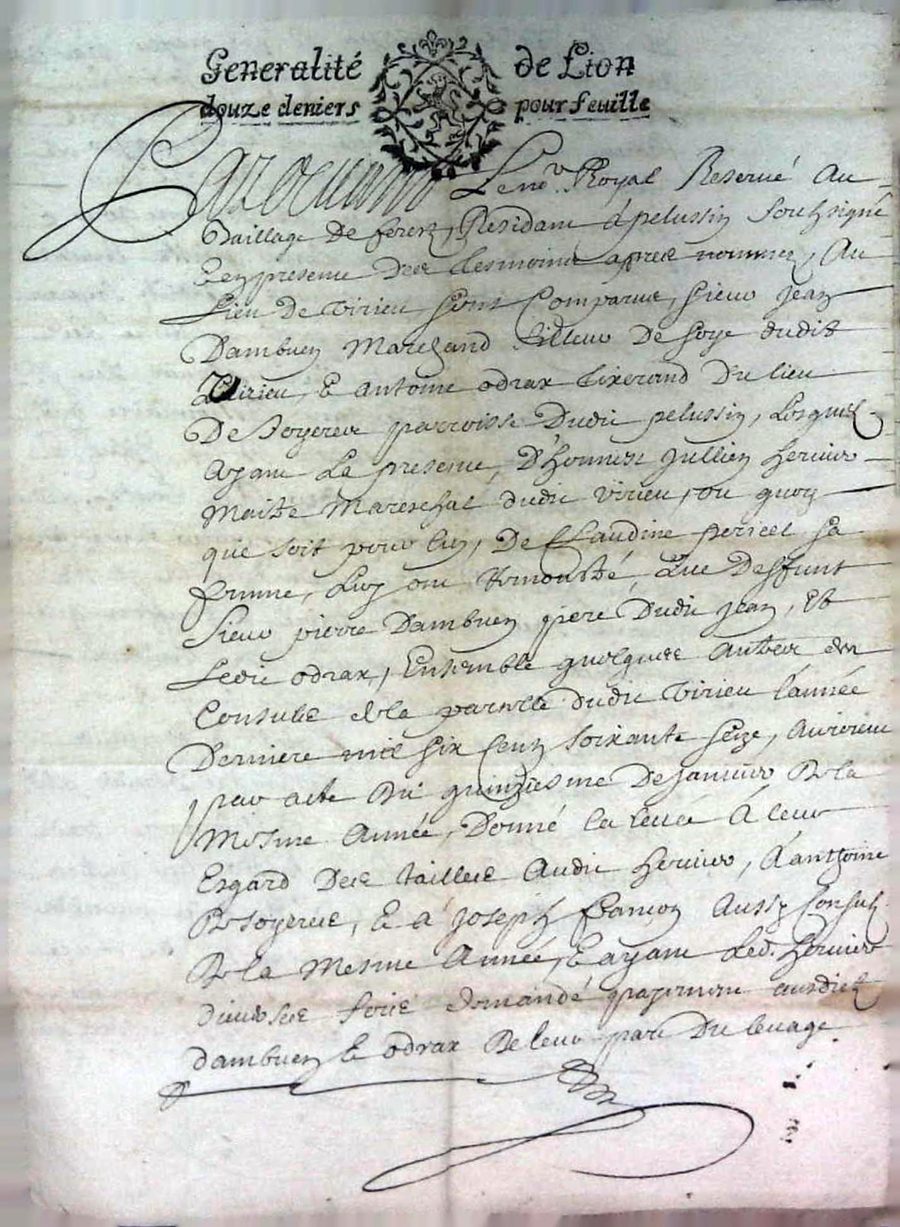 Generalité de Lion
douze deniers pour feuille
Par devant Le no.re Royal Reservé Au
Baillage De forez, Residant à pelussin soubsigné
Et en presence Des tesmoins apres nommez, Au
Lieu De Virieu sont Comparus, sieur Jean
Dambuen Marchand filleur De soye dudit
Virieu, Et antoine odrax tixerand Du lieu
De Soyeres parroisse Dudit pelussin, Lesquels
Ayant La presence, D'honneste Jullien hervier
Maitre Mareschal dudit Virieu, ou quoy
que soit pour luy, De Claudine pericel sa
femme, Luy ont Remonstré, que Deffunt
Sieur pierre Dambuen pere Dudit Jean, Et
Ledit odrax, Ensemble quelques Autres
Consuls de la parcelle dudit Virieu l'année
Derniere mil six cent soixante seize, auroient
par acte du quinziesme De Janvier De la
Mesme Année, Donné la levée à leur
Esgard Des tailles Audit hervier, à anthoine
De Soyeres, Et à Joseph Aussy Consuls
De la Mesme Année, Et ayant Led. hervier
diverses fois demandé payement ausdits
dambuen Et odrax De leur part Du levage